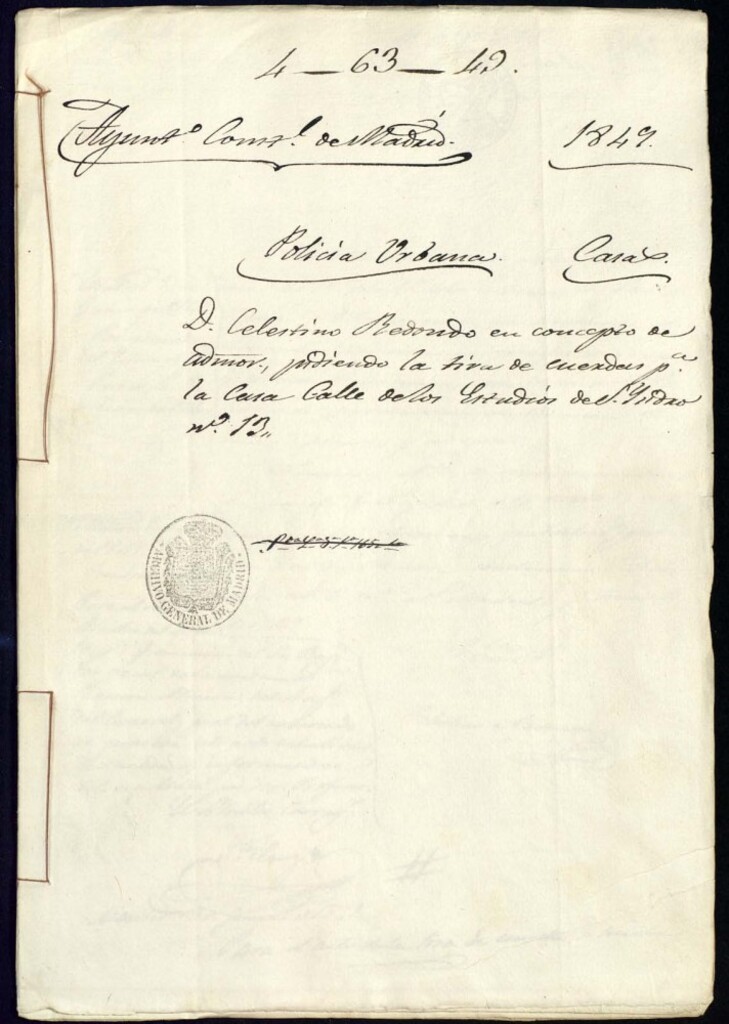 4 — 63 — 49.
Ayunt.º Const.l de Madrid. 1849.
Policia Urbana. Casas.
D. Celestino Redondo en concepto de
admor., pidiendo la tira de cuerdas p.ª
la Casa Calle de los Estudios de S. Ysidro
n.º 13,,
ARCHIVO GENERAL DE MADRID